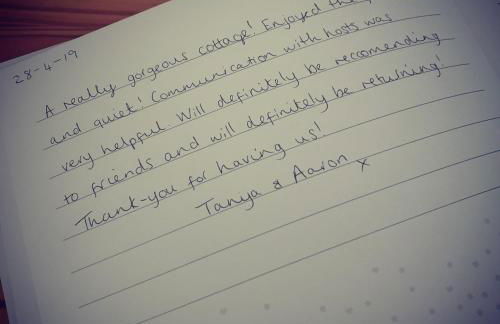 28-4-19
A really gorgeous cottage! Enjoyed the
and quiet! Communication with hosts was
very helpful. Will definitely be reccomending
to friends and will definitely be returning!
Thank-you for having us!
Tanya & Aaron x